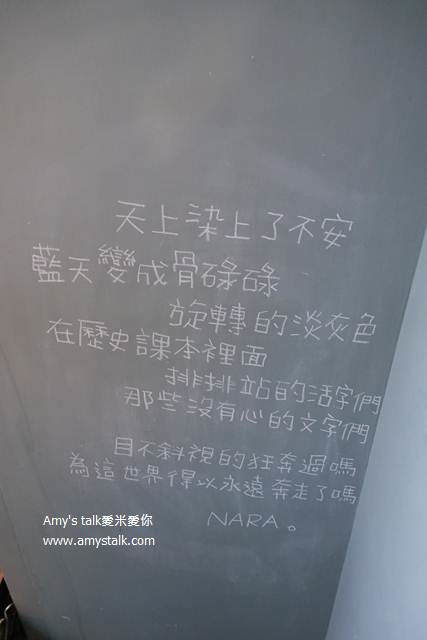 天上染上了不安
藍天變成骨碌碌
旋轉的淡灰色
在歷史課本裡面
排排站的活字們
那些沒有心的文字們
目不斜視的狂奔過嗎
為這世界得以永遠奔走了嗎
NARA。
Amy's talk愛米愛你
www.amystalk.com